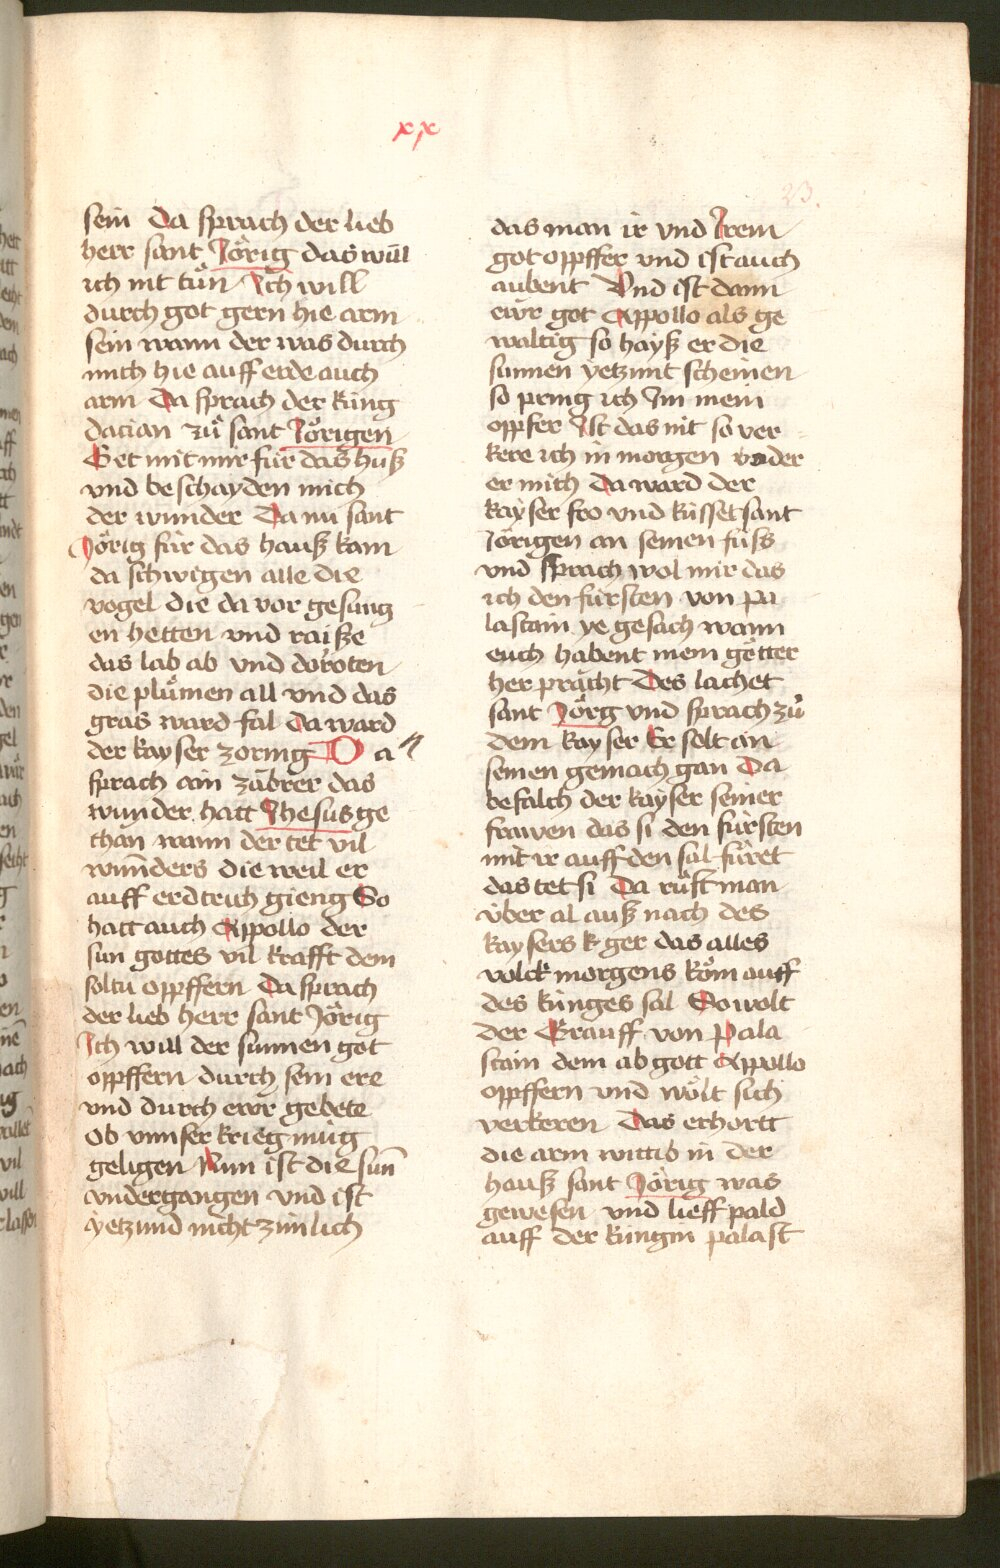 xx
23.
sein Da sprach der lieb
herr sant Jörig das will
ich nit tůn Ich will
durch got gern hie arm
sein wann der was durch
mich hie auff erde auch
arm Da sprach der küng
dacian zů sant Jörigen
Get mit mir für das huß
vnd beschayden mich
der wunder Da nu sant
Jörig für das hauß kam
da schwigen alle die
vogel die da vor gesung
en hetten vnd raiße
das lab ab vnd doroten
die plůmen all vnd das
gras ward fal Da ward
der kayser zornig Da
sprach ain zabrer das
wunder hatt Jhesus ge
than wann der tet vil
wunders die weil er
auff erdtrich gieng So
hatt auch Appollo der
sun gottes vil krafft dem
soltu oppffern Da sprach
der lieb herr sant Jörig
Ich will der sunnen got
oppffern durch sein ere
vnd durch ewr gebete
ob vnnser krieg müg
geligen Nun ist die sun̄
vndergangen vnd ist
yetzund nicht zimlich
das man ir vnd Irem
got oppffer vnd ist auch
aubent Vnd ist dann
ewr got Appollo als ge
waltig so hayß er die
sunnen yetzunt scheinen
so pring ich Im mein
oppfer Ist das nit so ver
kere ich in morgen oder
er mich Da ward der
kayser fro vnd küsset sant
Jörigen an seinen füss
vnd sprach wol mir das
ich den fürsten von pa
lastain ye gesach wann
euch habent mein götter
her pracht Des lachet
sant Jörg vnd sprach zů
dem kayser Er solt an
seinen gemach gan Da
befalch der kayser seiner
frawen das si den fürsten
mit ir auff den sal füret
das tet si Da rüfft man
über al auß nach des
kaysers k ger das alles
volck morgens köm auff
des künges sal So wolt
der Grauff von Pala
stain dem abgott Appollo
oppffern vnd wölt sich
verkeren Das erhortt
die arm wittib in der
hauß sant Jörig was
gewesen vnd lieff pald
auff der küngin palast